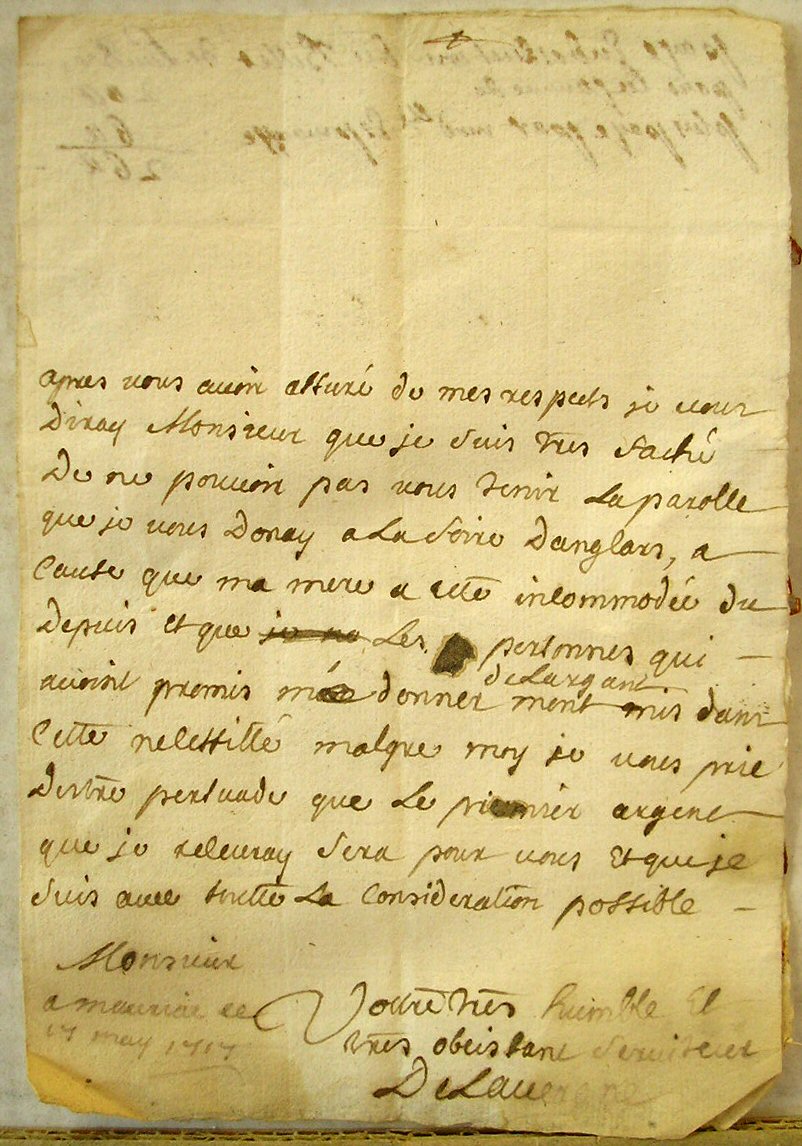 apres vous avoir assuré de mes respects je vous
Diray Monsieur que je suis tres faché
De ne pouvoir pas vous tenir La parolle
que je vous Donay a La foire Danglars, a
Cause que ma mere a ette incommodée du
Depuis et que je ne Les personnes qui
avoint promis me donner de Largant mont mis dans
Cette nesessitté malgre moy je vous prie
Destre persuade que Le premier argent
que je resevray sera pour vous Et que je
suis avec toutte La Consideration possible
Monsieur
a mauriac ce
17 may 1717
Vottre tres humble Et
tres obeissant serviteur
DeLavergne
2 6